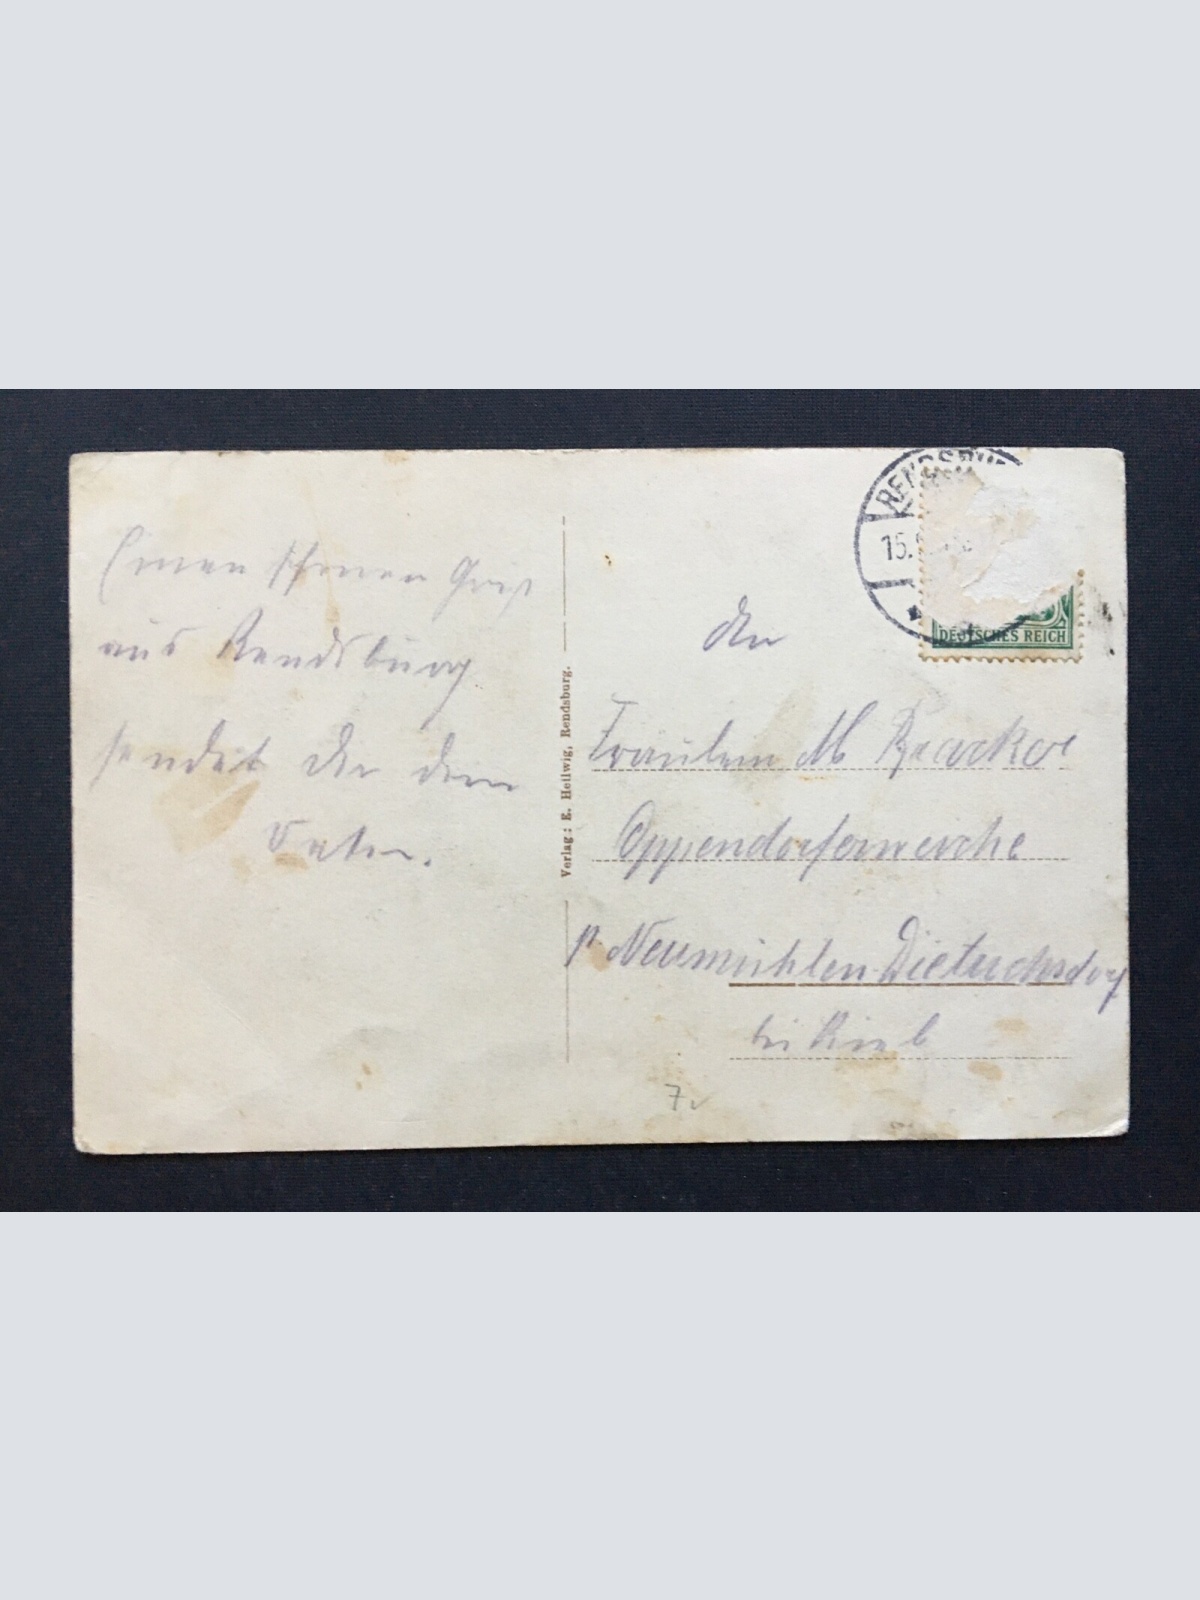 Einen schönen Gruß
aus Rendsburg
sendet dir dein
Vater.
Verlag: E. Hellwig, Rendsburg.
RENDSBU
15.
DEUTSCHES REICH
An
Fräulein M
Oppendorferweiche
p Neumühlen-Dietrichsdorf
bei Kiel
7